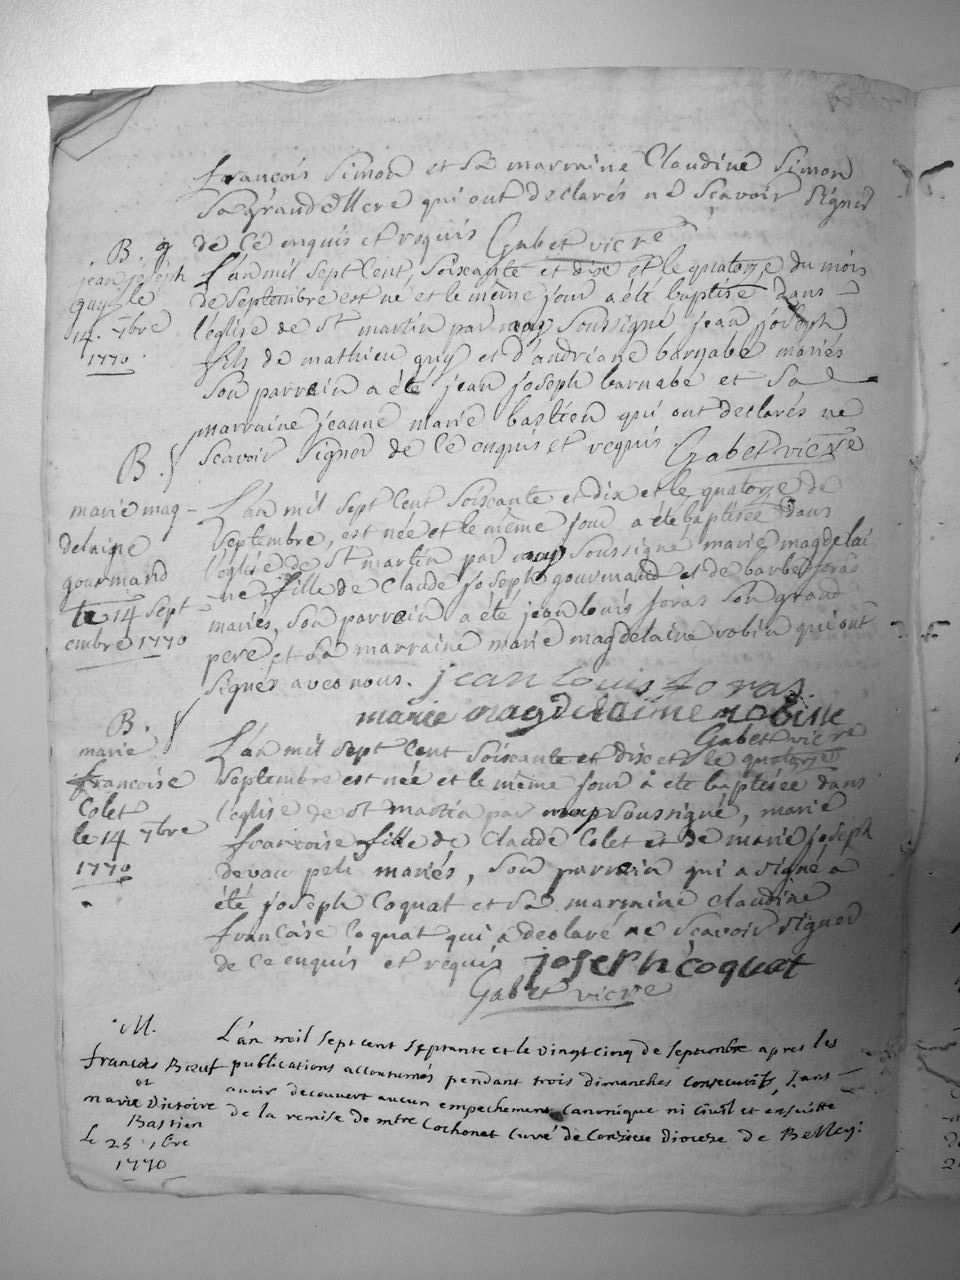 françois Simon et Sa marraine Claudine Simon
Sa Grande Mere qui ont declarés ne Scavoir Signer
de Ce enquis et requis Gabet vicre
B.
jean joseph
guy le
14. 7bre
1770.
L'an mil Sept Cent, Soixante et dix et le quatorze du mois
de Septembre est né et le même jour a été baptisé dans
l'église de St martin par moy Soussigné jean joseph
fils de mathieu guy et d'andriane barnabé mariés
Son parrain a été jean joseph barnabé et Sa
marraine jeanne marie bastien qui ont declarés ne
Scavoir Signer de Ce enquis et requis Gabet vicre
B.
marie mag-
delaine
gourmand
le 14 Sept
embre 1770
L'an mil Sept Cent Soixante et dix et le quatorze de
Septembre, est née et le même jour a été baptisée dans
l'église de St martin par moy Soussigné marie magdelai
ne fille de Claude joseph gourmand et de barbe foras
mariés, Son parrain a été jean louis foras Son grand
pere et Sa marraine marie magdelaine robin qui ont
Signés avec nous. jean louis foras
marie magdelaine robin
Gabet vicre
B.
marie
françoise
Colet
le 14 7bre
1770
L'an mil Sept Cent Soixante et dix et le quatorze
Septembre est née et le même jour a été baptisée dans
l'église de St martin par moy Soussigné, marie
françoise fille de Claude Colet et de marie joseph
mariés, Son parrain qui a Signé a
été joseph Coquat et Sa marraine Claudine
françoise Coquat qui a declaré ne Scavoir Signer
de Ce enquis et requis joseph coquat
Gabet vicre
M.
francois Bœuf
et
marie Victoire
Bastien
Le 25 7bre
1770
L'an mil Sept cent Septante et le vingt cinq de Septembre apres les
publications accoutumés pendant trois dimanches consecutifs, Sans
avoir decouvert aucun empechement Canonique ni Civil et ensuitte
de la remise de mtre Cochonat Curé de diocese de Belley: